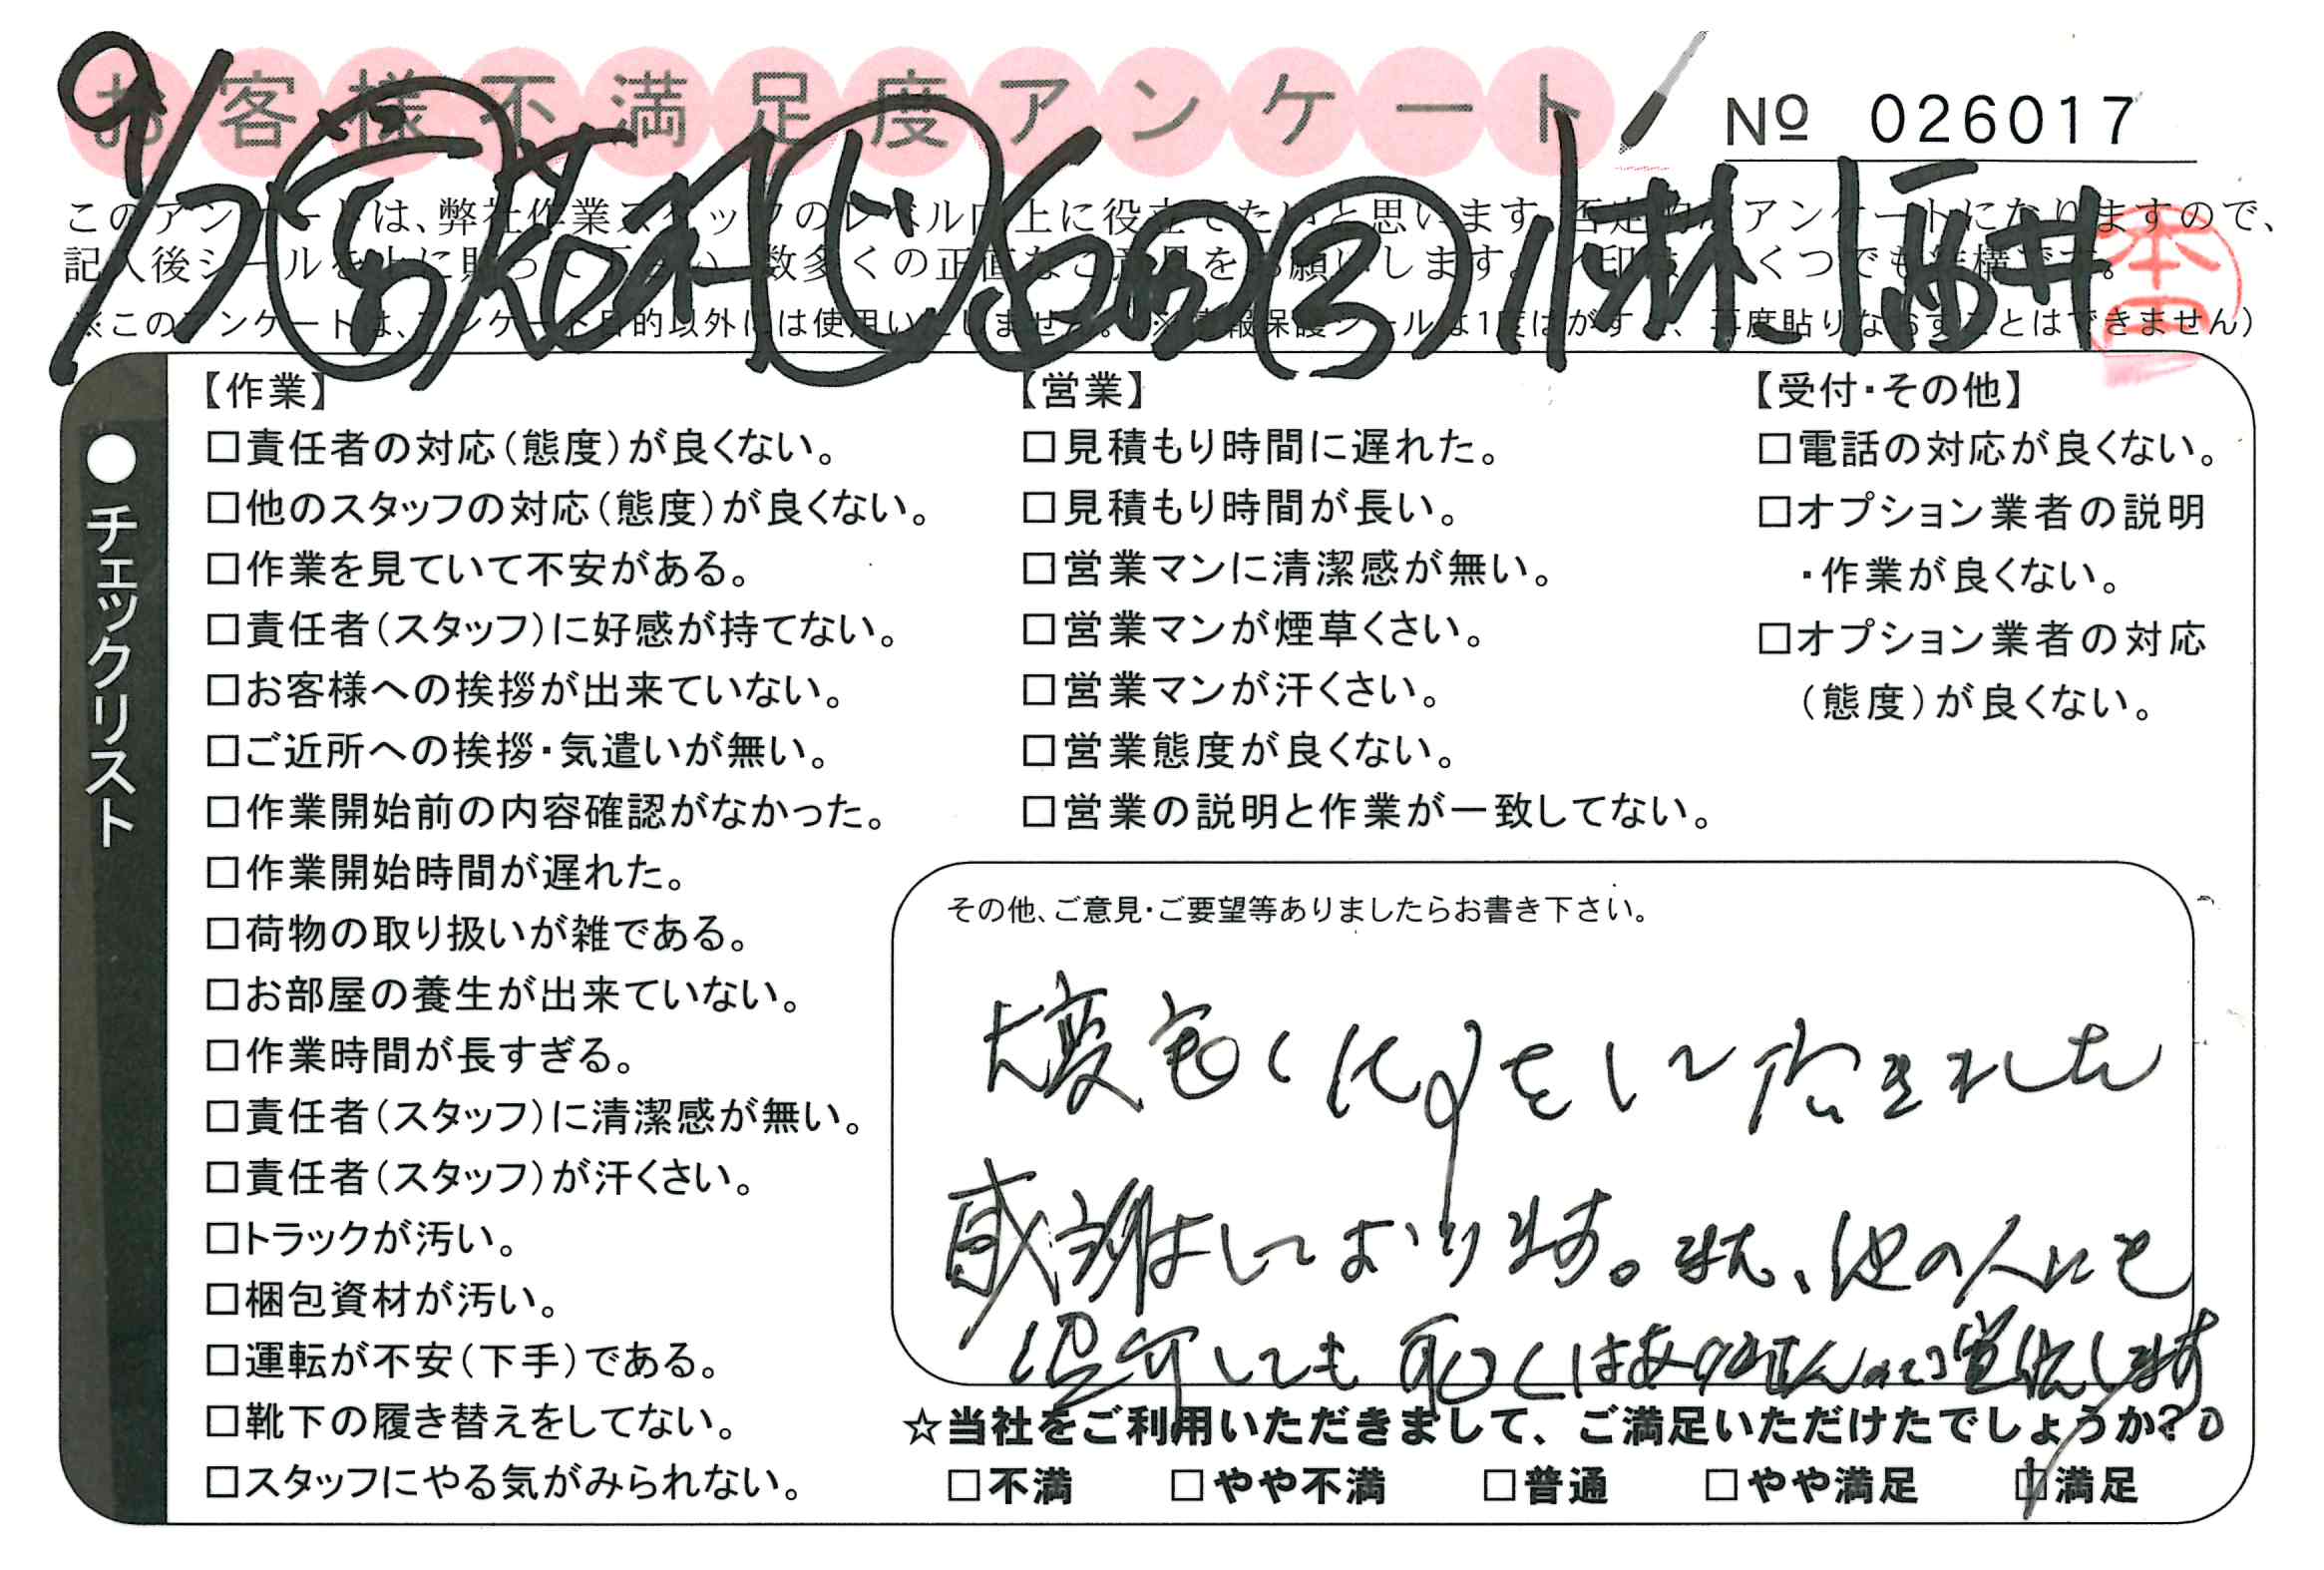 お客様不満足度アンケート
№ 026017
9/7
小林 酒井
このアンケートは、弊社作業スタッフのレベル向上に役立てたいと思います。否定的なアンケートになりますので、
記入後シールを上に貼って下さい。数多くの正直なご意見をお願いします。
※このアンケートは、アンケート目的以外には使用いたしません。(※情報保護シールは1度はがすと、再度貼りなおすことはできません)
●チェックリスト
【作業】
□責任者の対応(態度)が良くない。
□他のスタッフの対応(態度)が良くない。
□作業を見ていて不安がある。
□責任者(スタッフ)に好感が持てない。
□お客様への挨拶が出来ていない。
□ご近所への挨拶・気遣いが無い。
□作業開始前の内容確認がなかった。
□作業開始時間が遅れた。
□荷物の取り扱いが雑である。
□お部屋の養生が出来ていない。
□作業時間が長すぎる。
□責任者(スタッフ)に清潔感が無い。
□責任者(スタッフ)が汗くさい。
□トラックが汚い。
□梱包資材が汚い。
□運転が不安(下手)である。
□靴下の履き替えをしてない。
□スタッフにやる気がみられない。
【営業】
□見積もり時間に遅れた。
□見積もり時間が長い。
□営業マンに清潔感が無い。
□営業マンが煙草くさい。
□営業マンが汗くさい。
□営業態度が良くない。
□営業の説明と作業が一致してない。
【受付・その他】
□電話の対応が良くない。
□オプション業者の説明
・作業が良くない。
□オプション業者の対応
(態度)が良くない。
その他、ご意見・ご要望等ありましたらお書き下さい。
大変良く
感謝しております。また、他の人にも
紹介しても恥しくはありません
☆当社をご利用いただきまして、ご満足いただけたでしょうか?
□不満 □やや不満 □普通 □やや満足 □満足